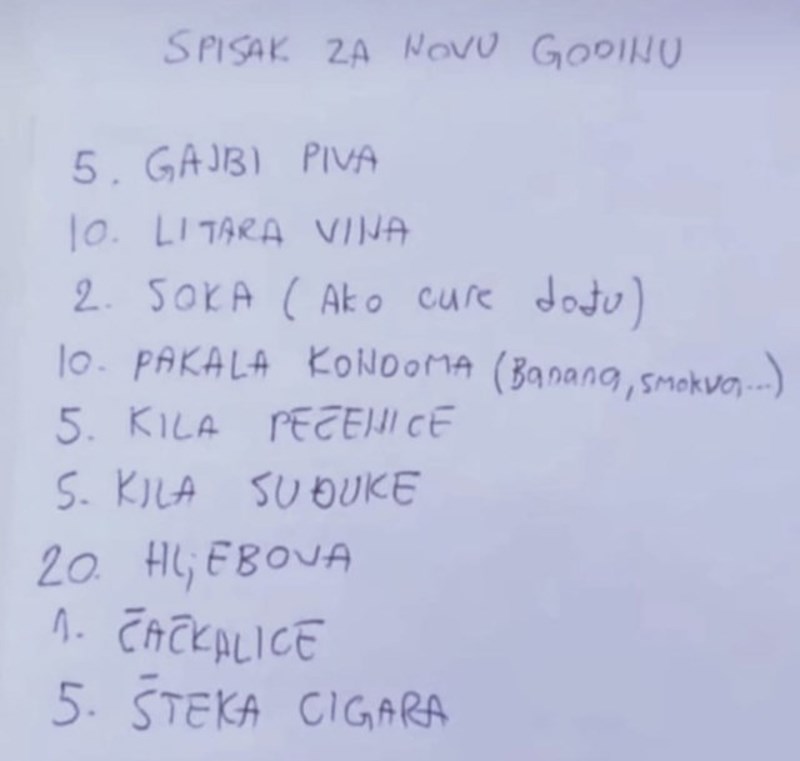 SPISAK ZA NOVU GODINU
5. GAJBI PIVA
10. LITARA VINA
2. SOKA (Ako cure dođu)
10. PAKALA KONDOMA (Banana, smokva,...)
5. KILA PEČENICE
5. KILA SUĐUKE
20. HLjEBOVA
1. ČAČKALICE
5. ŠTEKA CIGARA